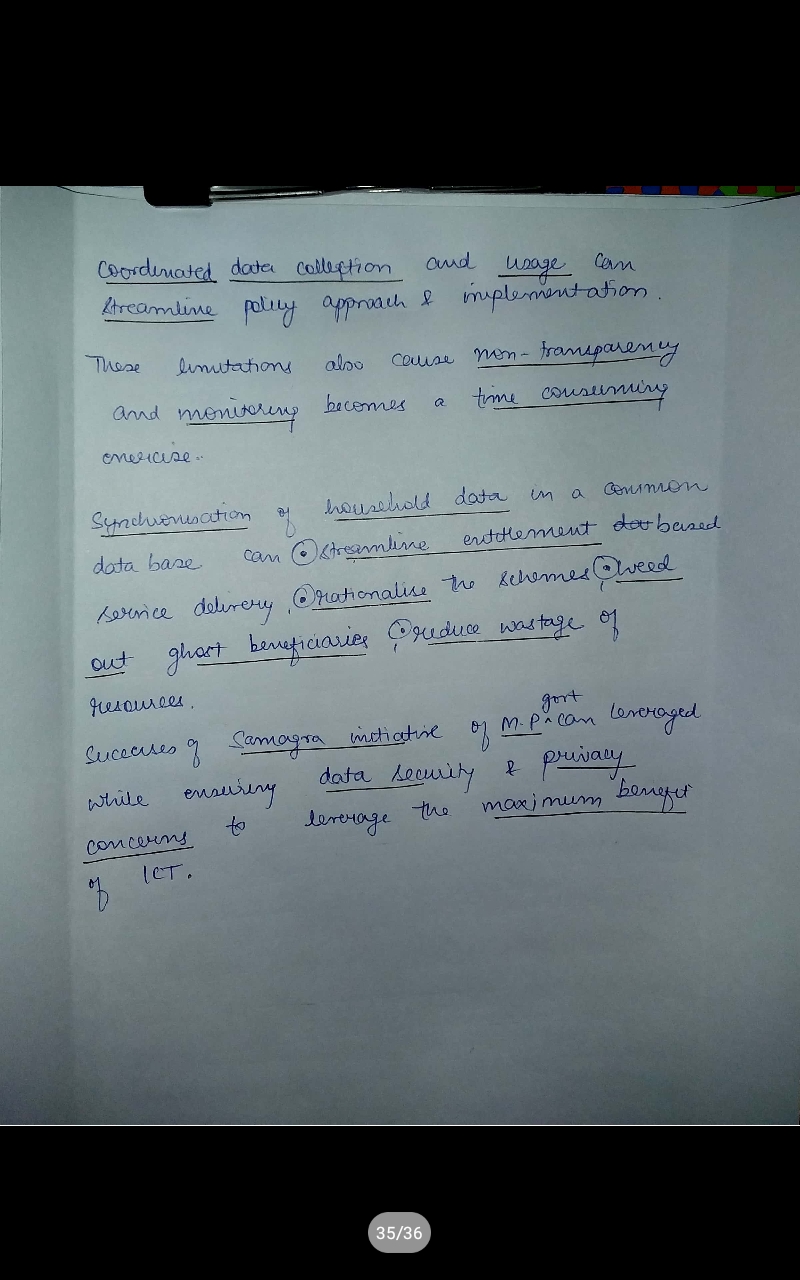 Coordinated data collection and usage can
streamline policy approach & implementation.
These limitations also cause non-transparency
and monitoring becomes a time consuming
exercise.
Synchronisation of household data in a common
data base can ⊙ streamline entitlement based
service delivery, ⊙ rationalise the schemes, ⊙ weed
out ghost beneficiaries, ⊙ reduce wastage of
resources.
Successes of Samagra initiative of M.P. govt can leveraged
while ensuring data security & privacy
concerns to leverage the maximum benefit
of ICT.
35/36